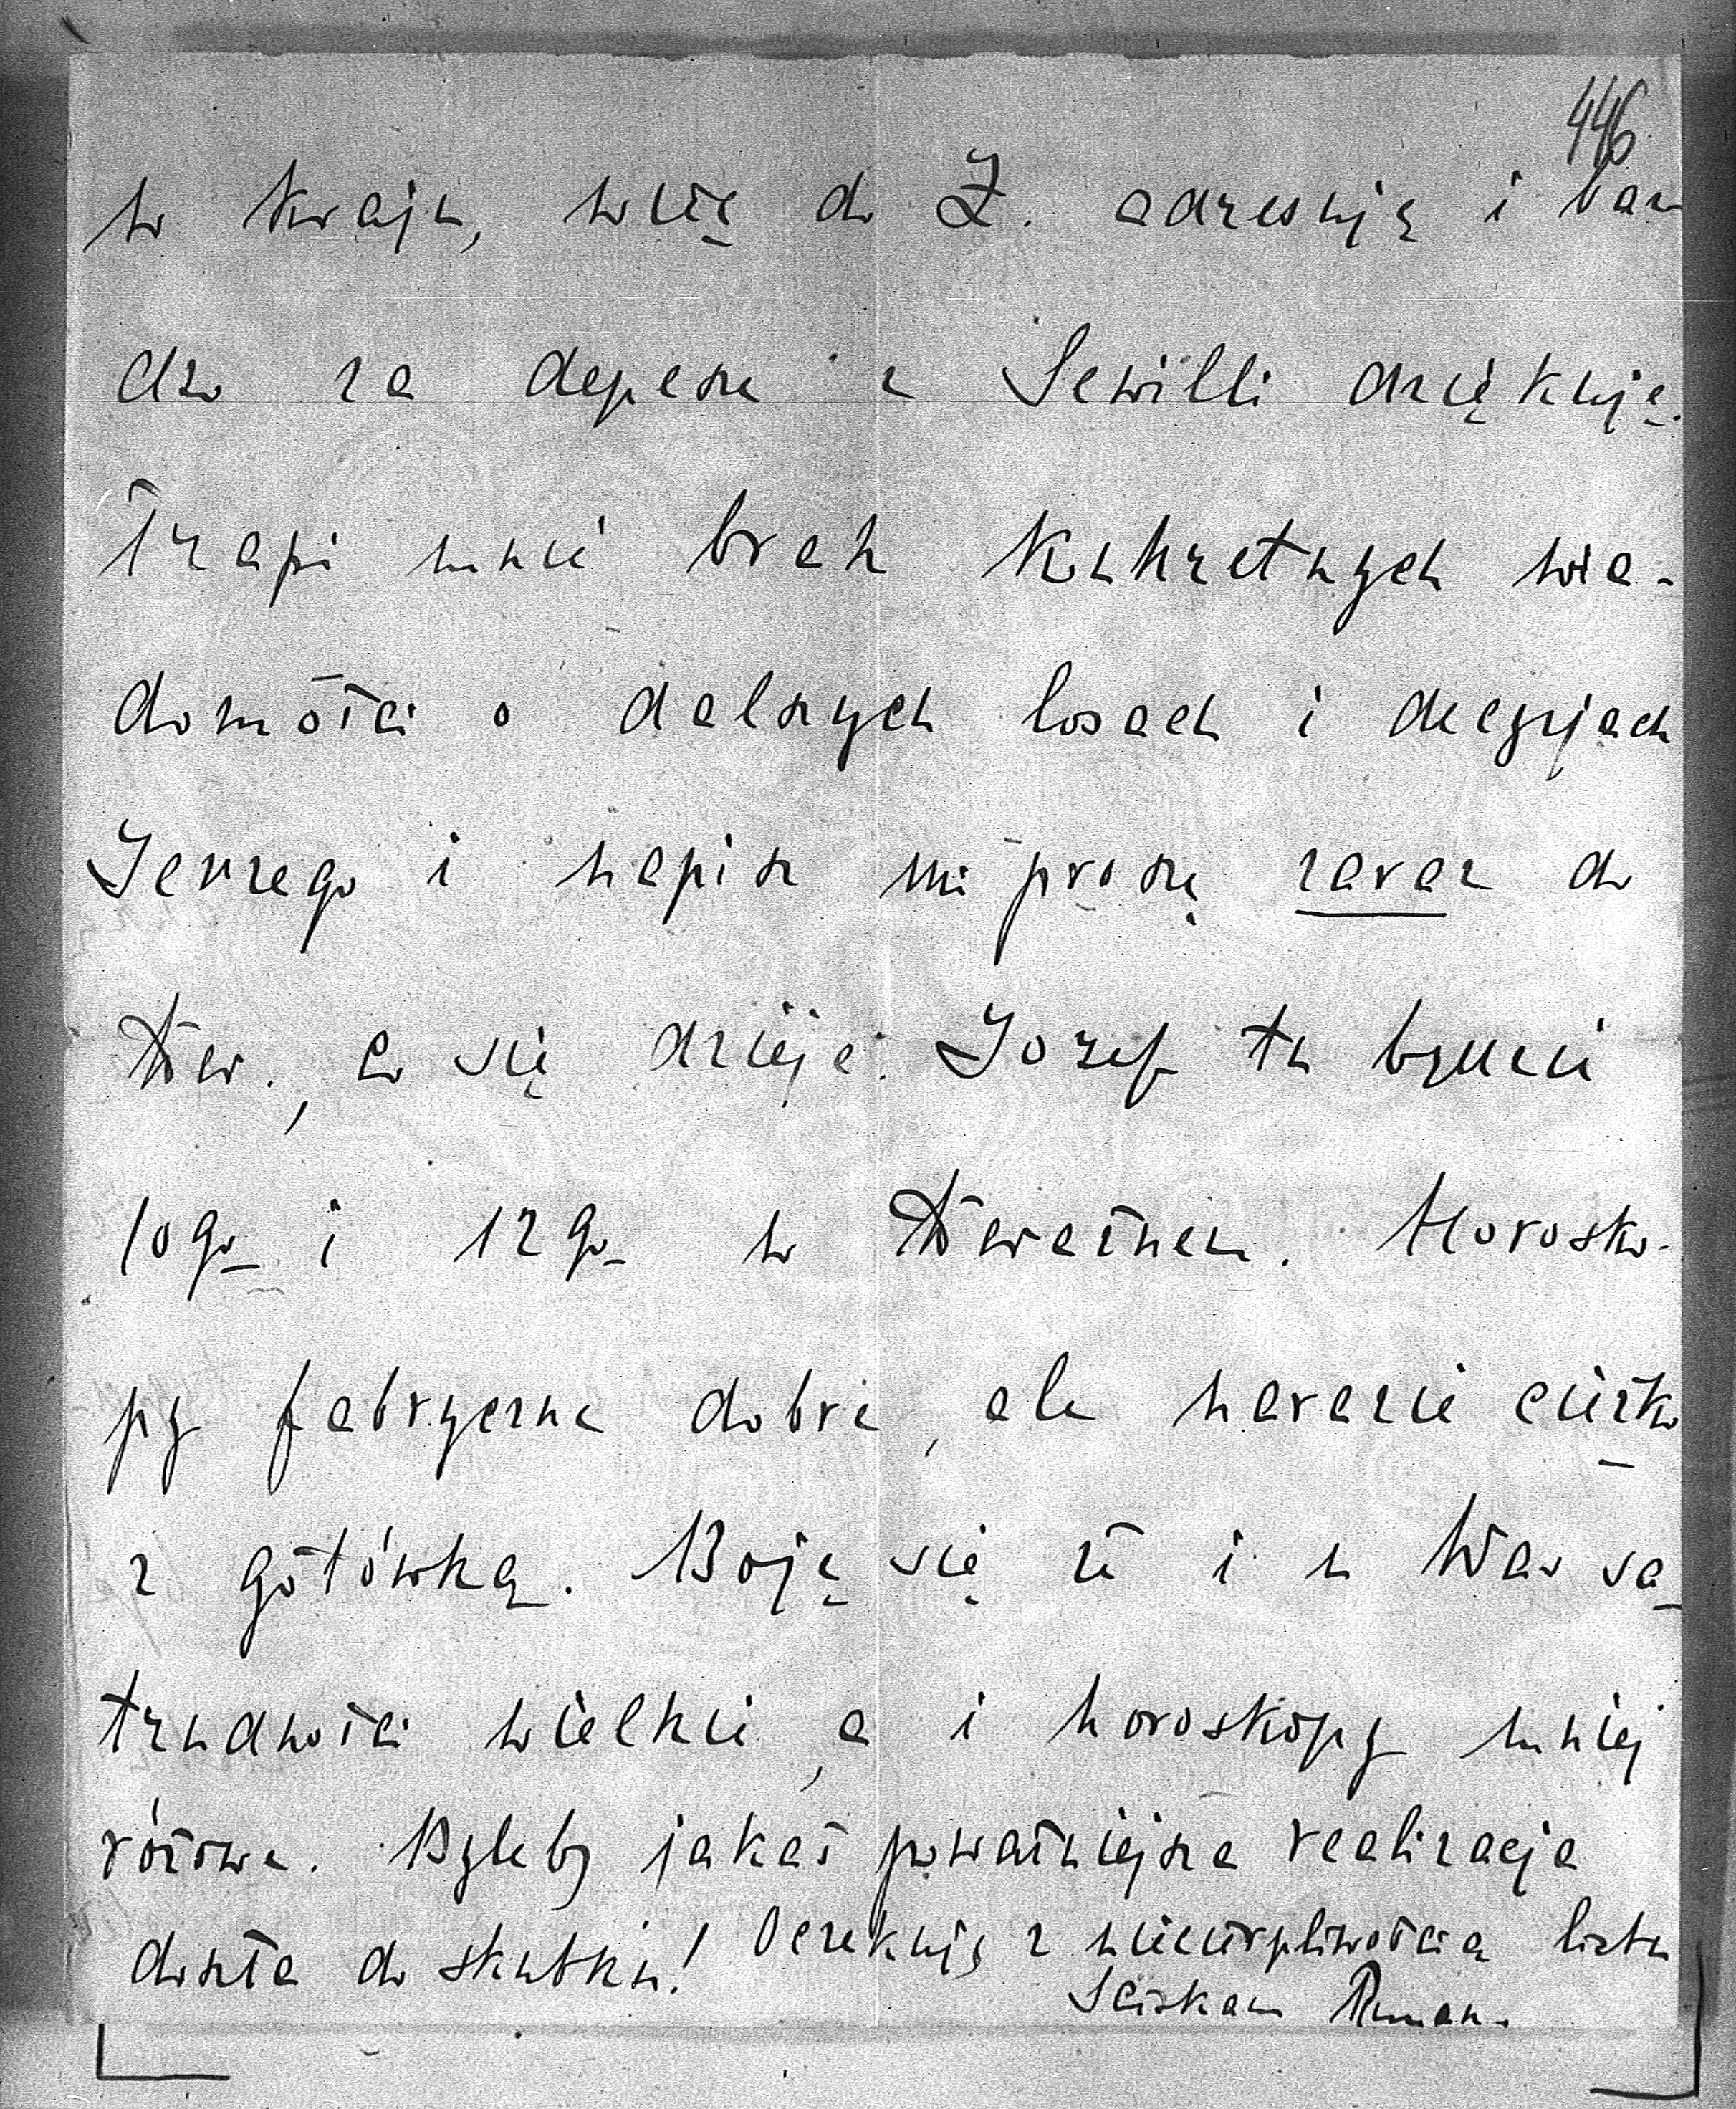 446
w kraju, więc do Z. adresuję i bar
dzo za depesze z Sewilli dziękuję.
Trapi mnie brak konkretnych wia-
domości o dalszych losach i decyzjach
Jerzego i napisz mi proszę zaraz do
co się dzieje. Jozef tu będzie
10go i 12go w Horosko-
py fabryczne dobre, ale narazie ciężko
z gotówką. Boję się że i u Was są
trudności wielkie, a i horoskopy mniej
różowe. Byleby jakaś poważniejsza realizacja
doszła do skutku! Oczekuję z niecierpliwością listu
Ściskam Roman.